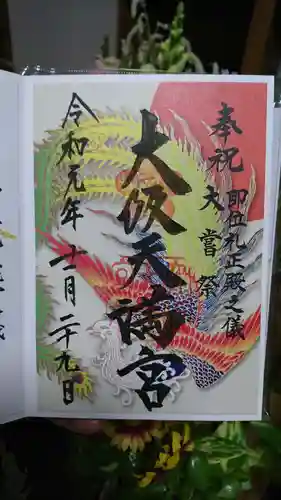 奉祝
即位礼正殿之儀
大嘗祭
大阪天満宮
令和元年十一月二十九日